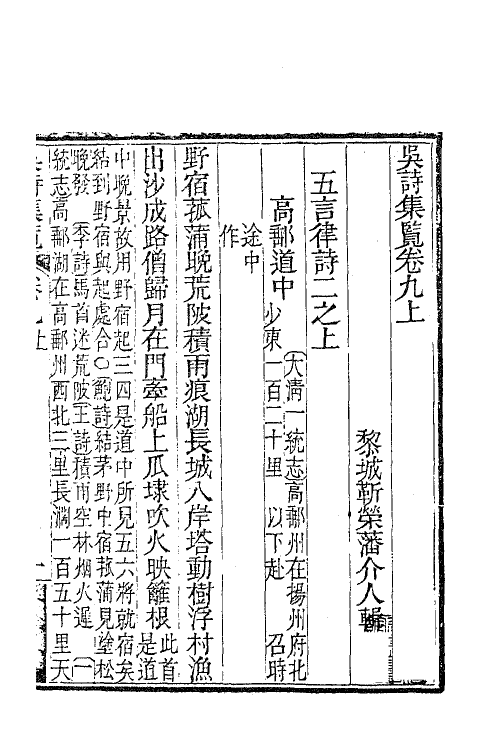 吳詩集覽卷九上
黎城靳榮藩介人輯
五言律詩二之上
高郵道中
大淸一統志高郵州在揚州府北
少東一百二十里 以下赴 召時
途中
作
野宿菰蒲晚荒陂積雨痕湖長城入岸塔動樹浮村漁
出沙成路僧歸月在門牽船上瓜埭吹火映籬根
此首
是道
中晚景故用野宿起三四是道中所見五六將就宿矣
結到野宿與起處合〇鮑詩結茅野中宿菰蒲見塗松
晚發 季詩馬首迷荒陂王詩積雨空林烟火遲一
統志高郵湖在高郵州西北三里長濶一百五十里天
吳詩集覽 卷九上 一